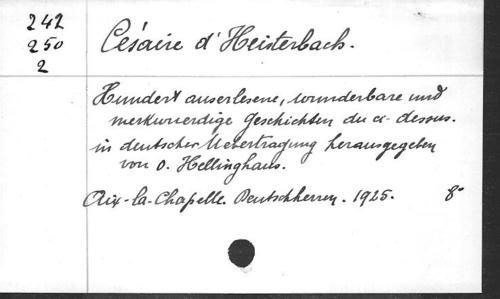 242
250
2
Césaire d'Heisterbach.
Hundert auserlesene, wunderbare und
merkwuerdige Geschichten du ci-dessus.
in deutscher Uebertragung herausgegeben
von O. Hellinghaus.
Aix-la-Chapelle. Deutschherren. 1925. 8°